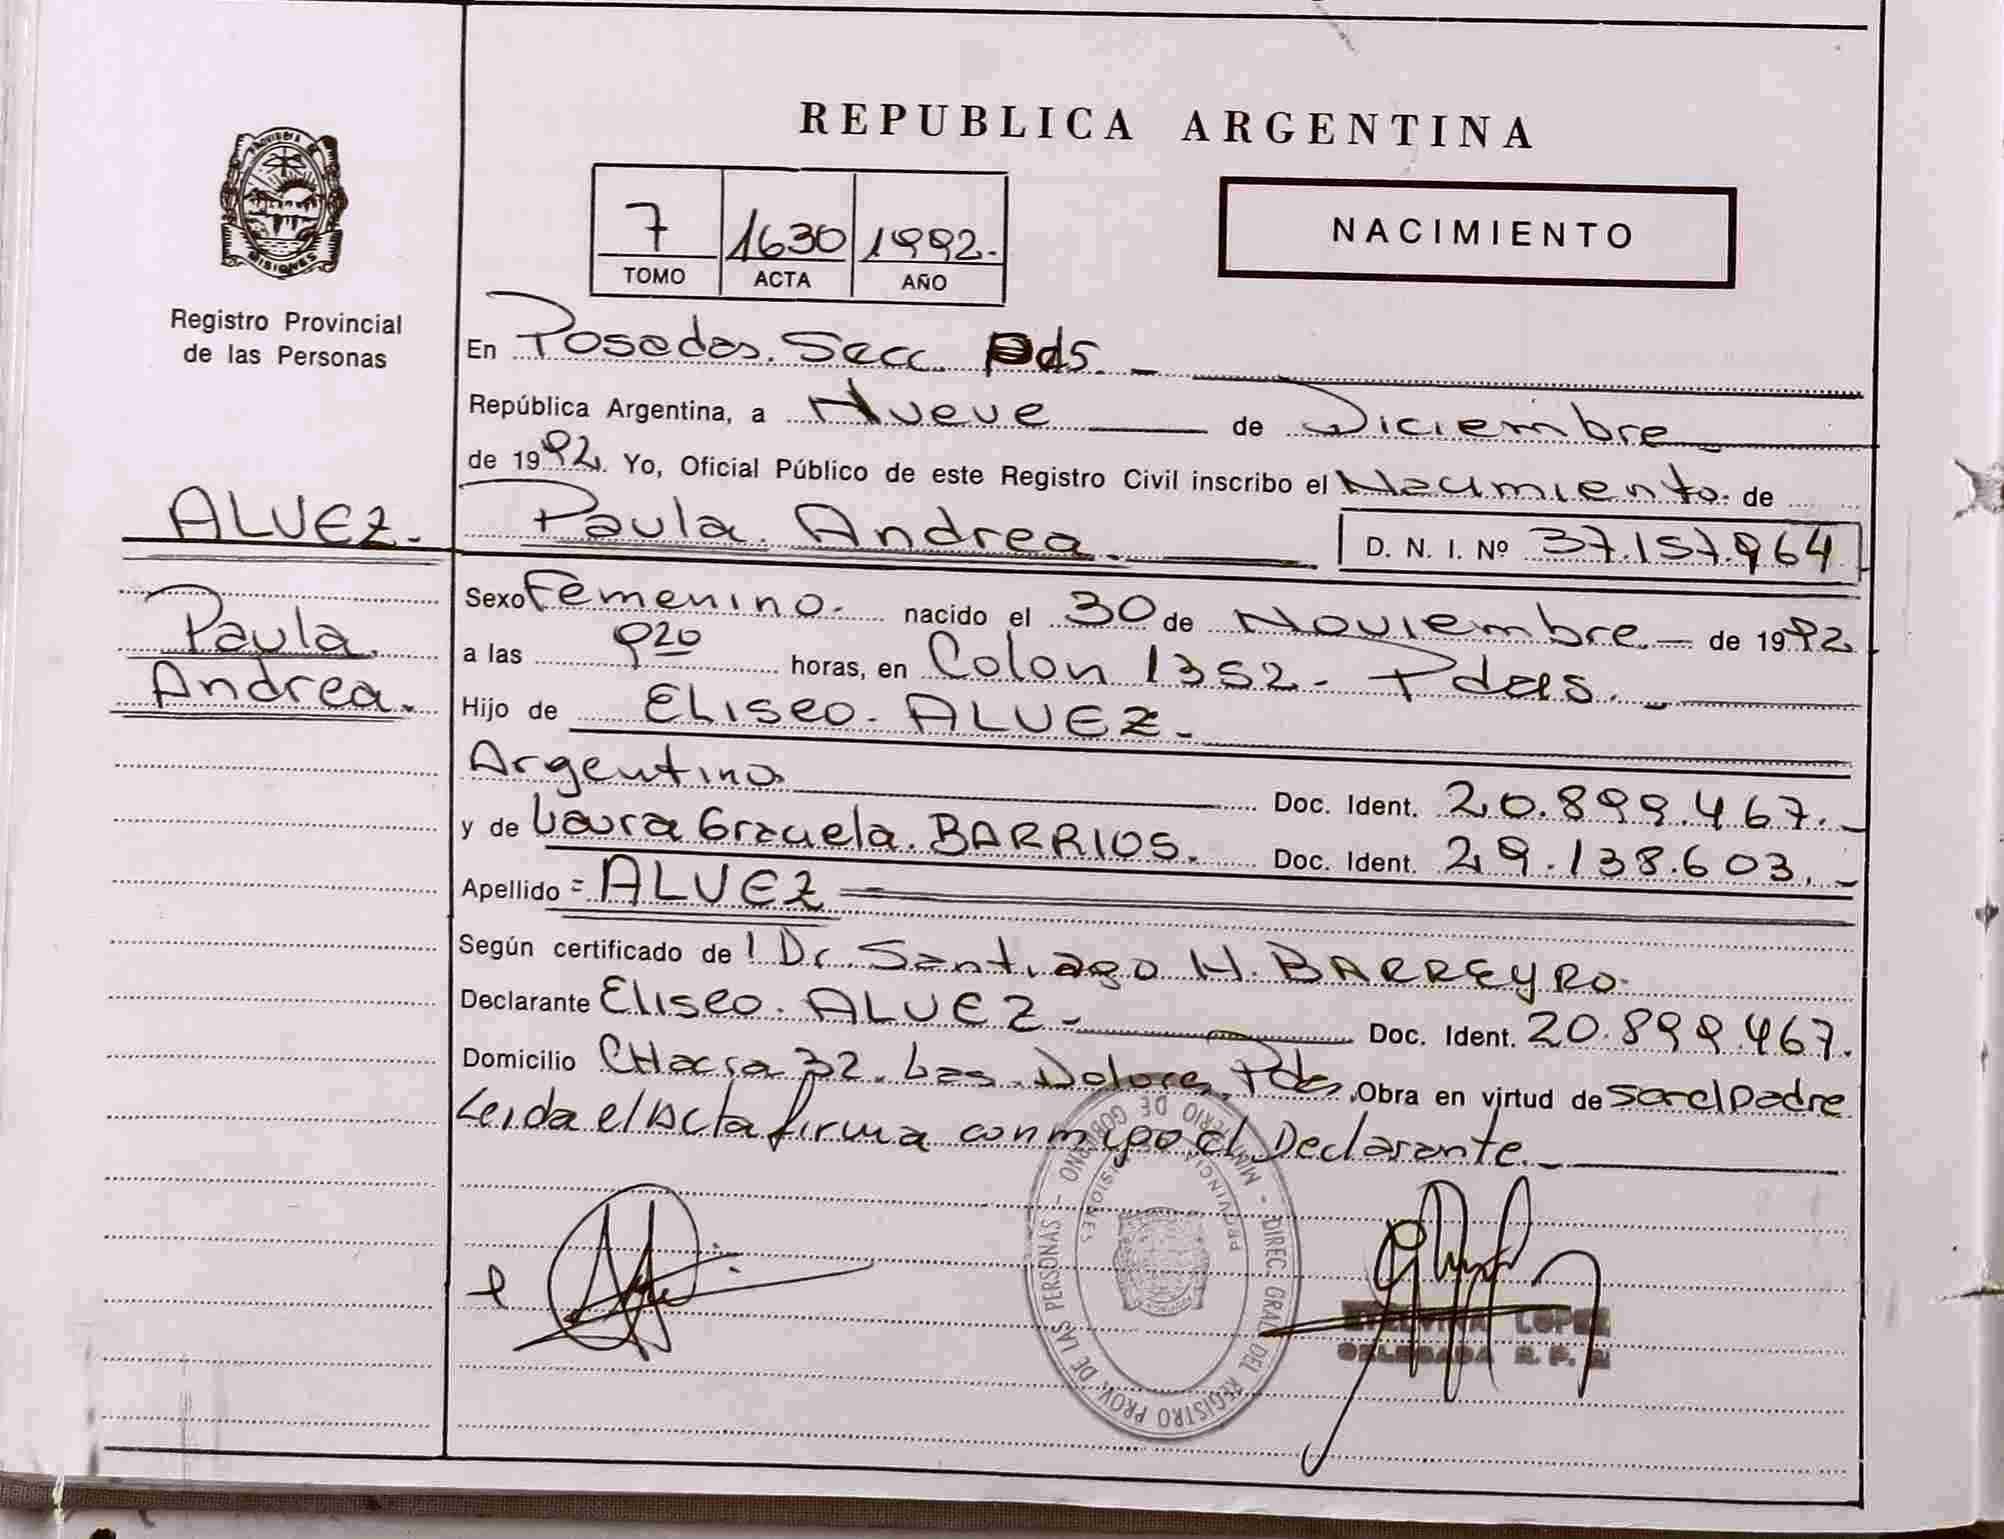 REPUBLICA ARGENTINA
PROVINCIA DE
MISIONES
Registro Provincial
de las Personas
7 1630 1992.
TOMO ACTA AÑO
NACIMIENTO
En Posadas. Secc. Pds.
República Argentina, a Nueve de Diciembre
de 1992. Yo, Oficial Público de este Registro Civil inscribo el Nacimiento. de
ALVEZ. Paula. Andrea. D. N. I. Nº 37.157.964
Paula.
Andrea.
Sexo Femenino. nacido el 30 de Noviembre. de 1992
a las 9 20 horas, en Colon 1352. Pdas.
Hijo de Eliseo. ALVEZ.
Argentino Doc. Ident. 20.899.467.
y de Laura Graciela. BARRIOS. Doc. Ident. 29.138.603.
Apellido = ALVEZ
Según certificado de l Dr. Santiago H. BARREYRO.
Declarante Eliseo. ALVEZ Doc. Ident. 20.899.467.
Domicilio CHacra 32. Las. Dolores. Pdas Obra en virtud de ser el Padre
Leida el Acta firma conmigo el Declarante.
MINISTERIO DE GOBIERNO - DIREC. GRAL. DEL REGISTRO PROV. DE LAS PERSONAS -
PROVINCIA MISIONES
LOPEZ
DELEGADA R. P.